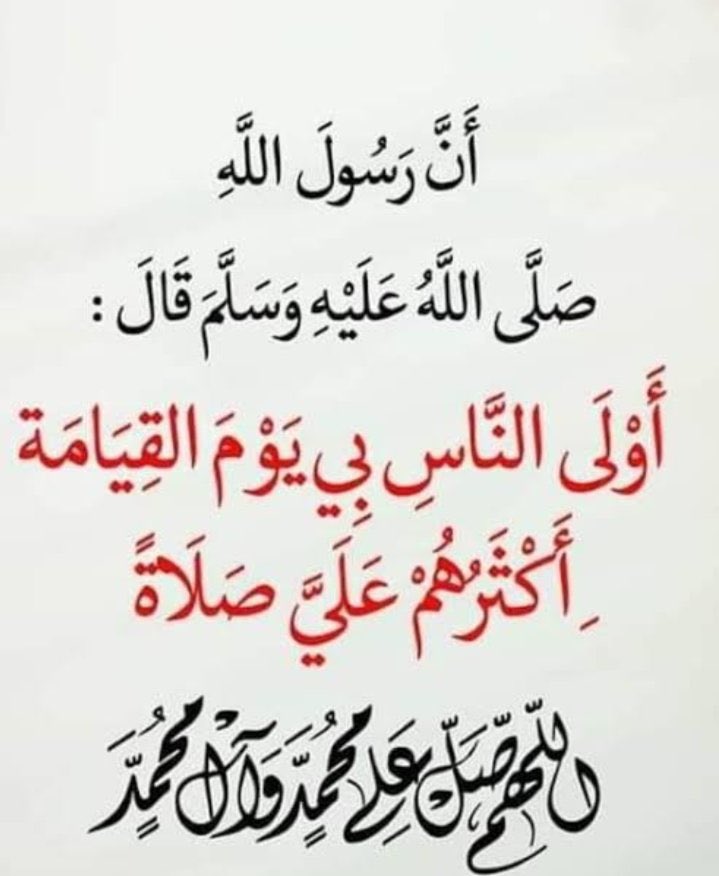 أَنَّ رَسُولَ اللَّهِ
صَلَّى اللَّهُ عَلَيْهِ وَسَلَّمَ قَالَ :
أَوْلَى النَّاسِ بِي يَوْمَ القِيَامَة
ِأَكْثَرُهُمْ عَلَيَّ صَلَاةً
اللّهُمّ صَلّ عَلى مُحَمَّدٍ وَآلِ مُحَمَّدٍ